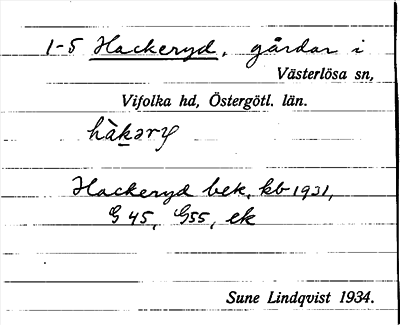 1-5 Hackeryd, gårdar i
Västerlösa sn,
Vifolka hd, Östergötl. län.
Hackeryd bek. kb 1931,
G 45, G55, ek
Sune Lindqvist 1934.